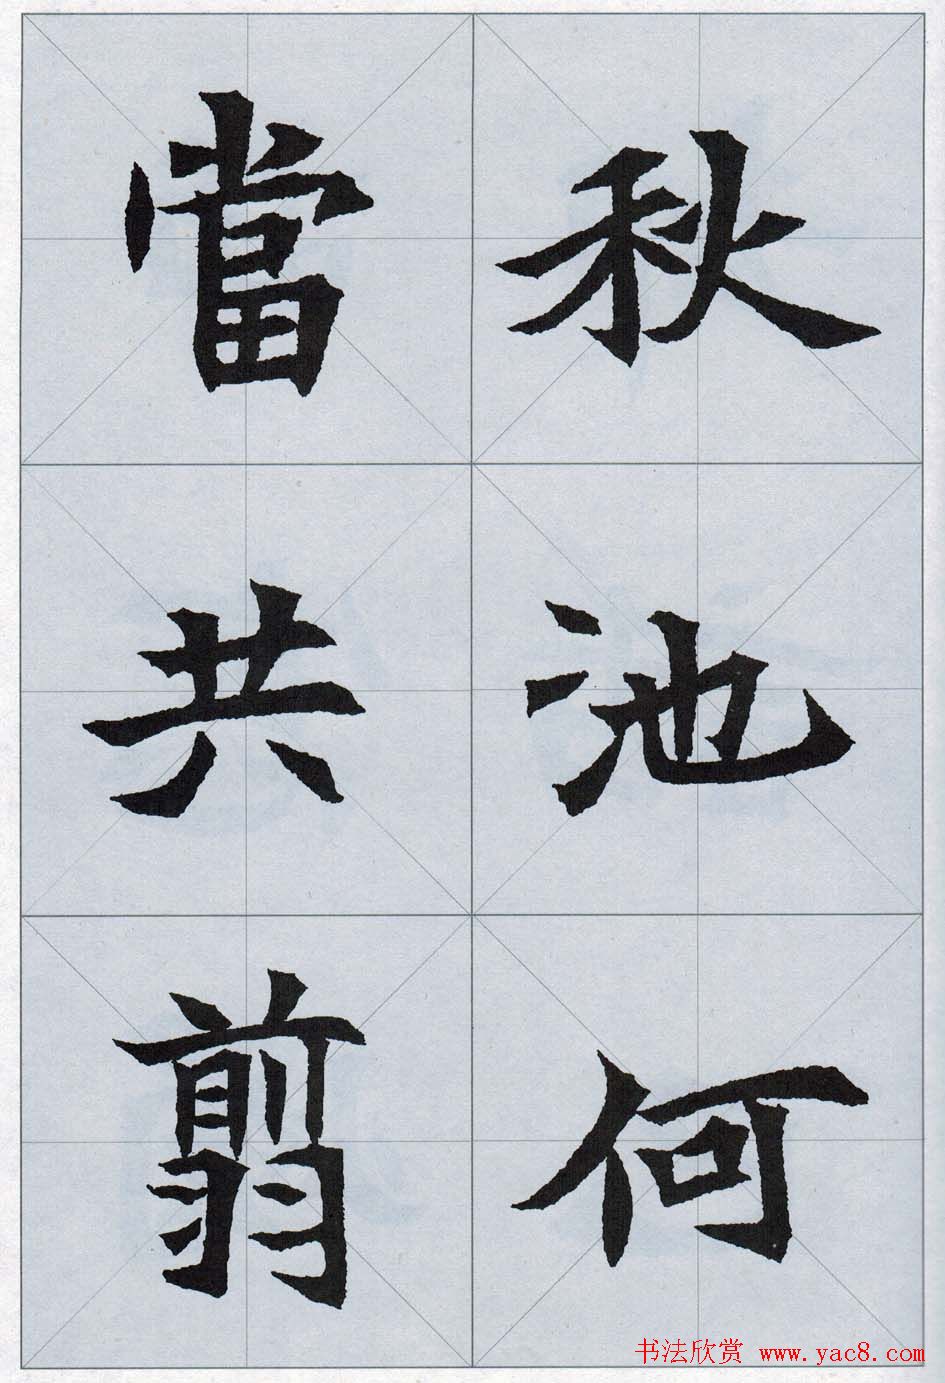 秋池何
當共翦
书法欣赏 www.yac8.com